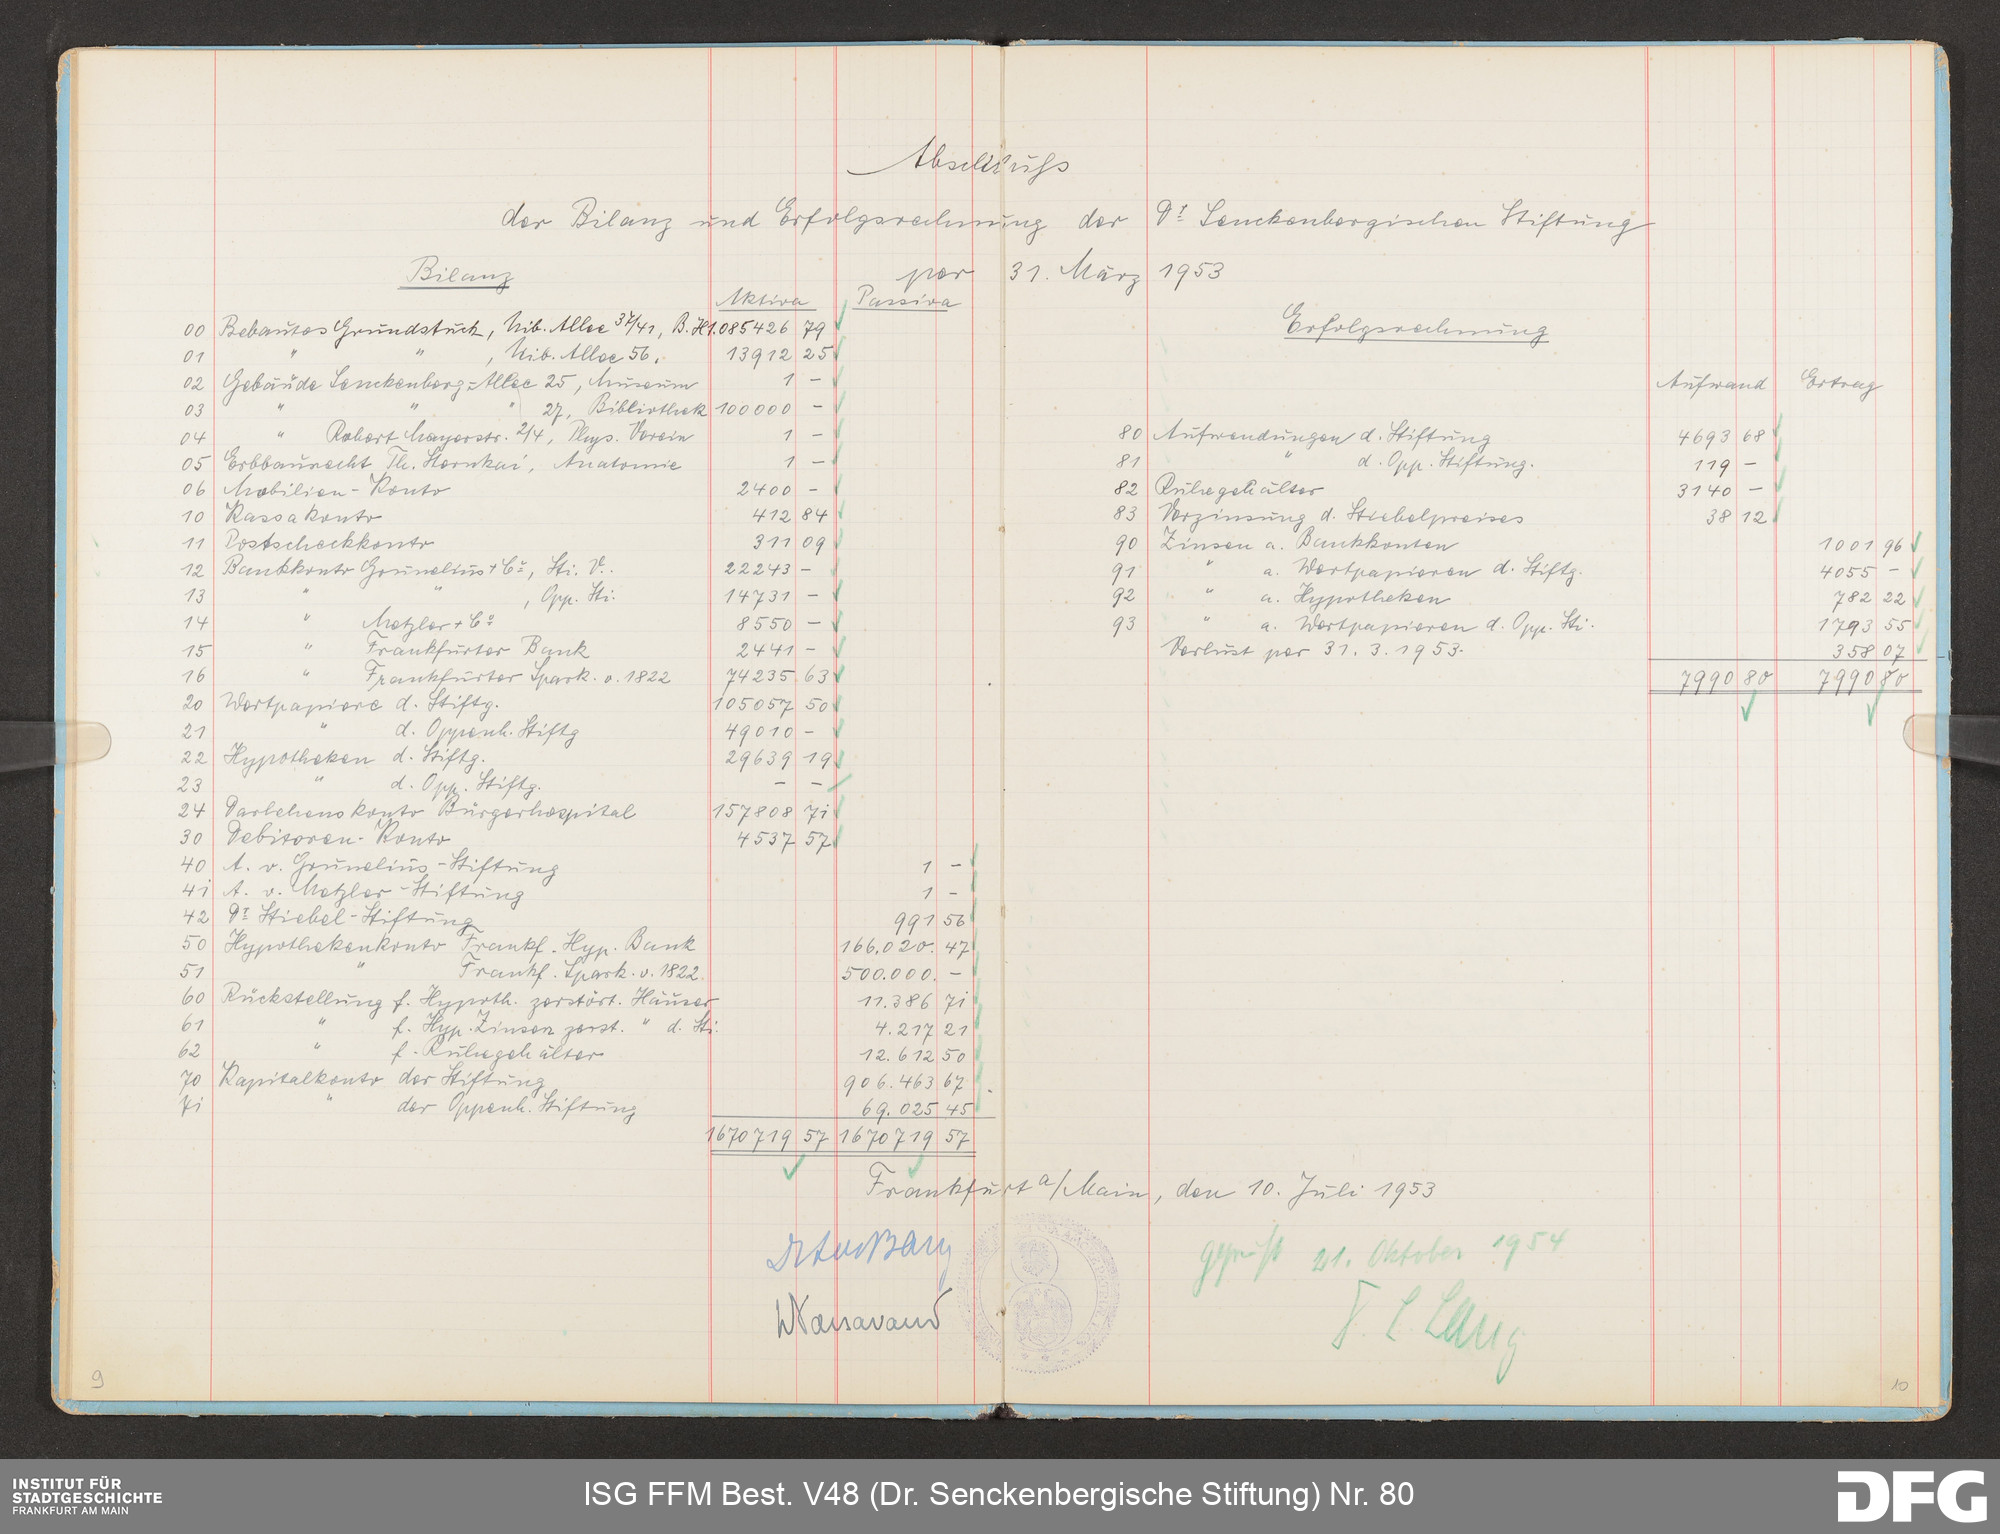 Abschluſs
der Bilanz und Erfolgsrechnung der Dr. Senckenbergischen Stiftung
per 31. März 1953
Bilanz
Aktiva Passiva
00 Bebautes Grundstück, Nib. Allee 37/41, B.H. 1.085426 79
01 " " , Nib. Allee 56. 13912 25
02 Gebäude Senckenberg-Allee 25, Museum 1 –
03 " " " 27, Bibliothek 100000 –
04 " Robert Mayerstr. 2/4, Phys. Verein 1 –
05 Erbbaurecht Th. Sternkai, Anatomie 1 –
06 Mobilien-Konto 2400 –
10 Kassakonto 412 84
11 Postscheckkonto 311 09
12 Bankkonto Grunelius + Co, Sti. V. 22243 –
13 " " , Opp. Sti. 14731 –
14 " Metzler + Co 8550 –
15 " Frankfurter Bank 2441 –
16 " Frankfurter Spark. v. 1822 74235 63
20 Wertpapiere d. Stiftg. 105057 50
21 " d. Oppenh. Stiftg 49010 –
22 Hypotheken d. Stiftg. 29639 19
23 " d. Opp. Stiftg. – –
24 Darlehenskonto Bürgerhospital 157808 71
30 Debitoren-Konto 4537 57
40 A. v. Grunelius-Stiftung 1 –
41 A. v. Metzler-Stiftung 1 –
42 Dr. Stiebel-Stiftung 991 56
50 Hypothekenkonto Frankf. Hyp. Bank 166.020. 47
51 " Frankf. Spark. v. 1822. 500.000. –
60 Rückstellung f. Hypoth. zerstört. Häuser 11.386 71
61 " f. Hyp. Zinsen zerst. " d. Sti. 4.217 21
62 " f. Ruhegehälter 12.612 50
70 Kapitalkonto der Stiftung 906.463 67
71 " der Oppenh. Stiftung 69.025 45
1670719 57 1670719 57
Erfolgsrechnung
Aufwand Ertrag
80 Aufwendungen d. Stiftung 4693 68
81 " d. Opp. Stiftung. 119 –
82 Ruhegehälter 3140 –
83 Verzinsung d. Stiebelpreises 38 12
90 Zinsen a. Bankkonten 1001 96
91 " a. Wertpapieren d. Stiftg. 4055 –
92 " a. Hypotheken 782 22
93 " a. Wertpapieren d. Opp. Sti. 1793 55
Verlust per 31. 3. 1953. 358 07
7990 80 7990 80
Frankfurt a/Main, den 10. Juli 1953
geprüft 21. Oktober 1954
F. L. Lang
9
10
INSTITUT FÜR
STADTGESCHICHTE
FRANKFURT AM MAIN
ISG FFM Best. V48 (Dr. Senckenbergische Stiftung) Nr. 80
DFG